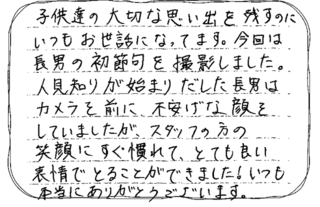 子供達の大切な思い出を残すのに
いつもお世話になってます。今回は
長男の初節句を撮影しました。
人見知りが始まりだした長男は
カメラを前に不安げな顔を
していましたが、スタッフの方の
笑顔にすぐ慣れて、とても良い
表情でとることができました!いつも
本当にありがとうございます。